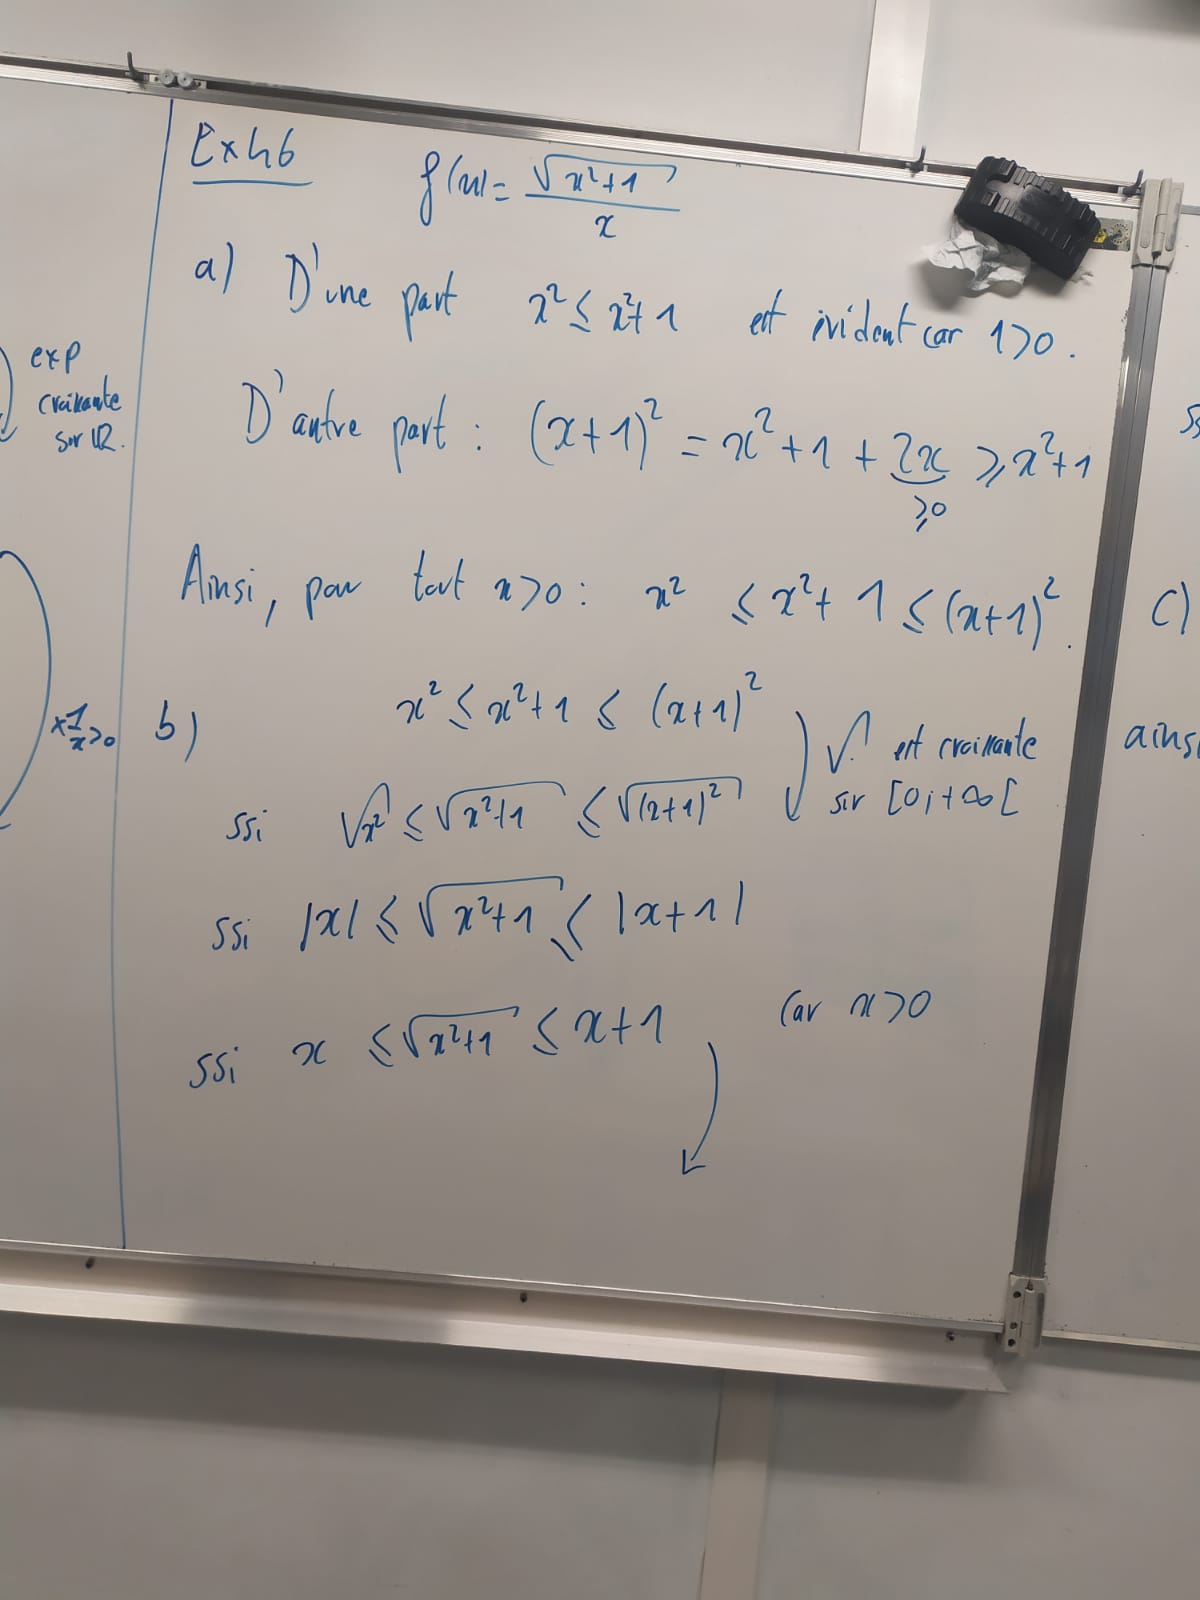 exp
croissante
sur ℝ.
×1/x>0
Ex46
f(x)= √(x²+1) / x
a) D'une part x² ≤ x²+1 est évident car 1>0.
D'autre part : (x+1)² = x²+1 + 2x ⩾ x²+1
⩾0
Ainsi, pour tout x>0 : x² ≤ x²+1 ≤ (x+1)².
b) x² ≤ x²+1 ≤ (x+1)²
√. est croissante
sur [0;+∞[
ssi √x² ≤ √(x²+1) ≤ √((x+1)²)
ssi |x| ≤ √(x²+1) ≤ |x+1|
ssi x ≤ √(x²+1) ≤ x+1 car x>0
c)